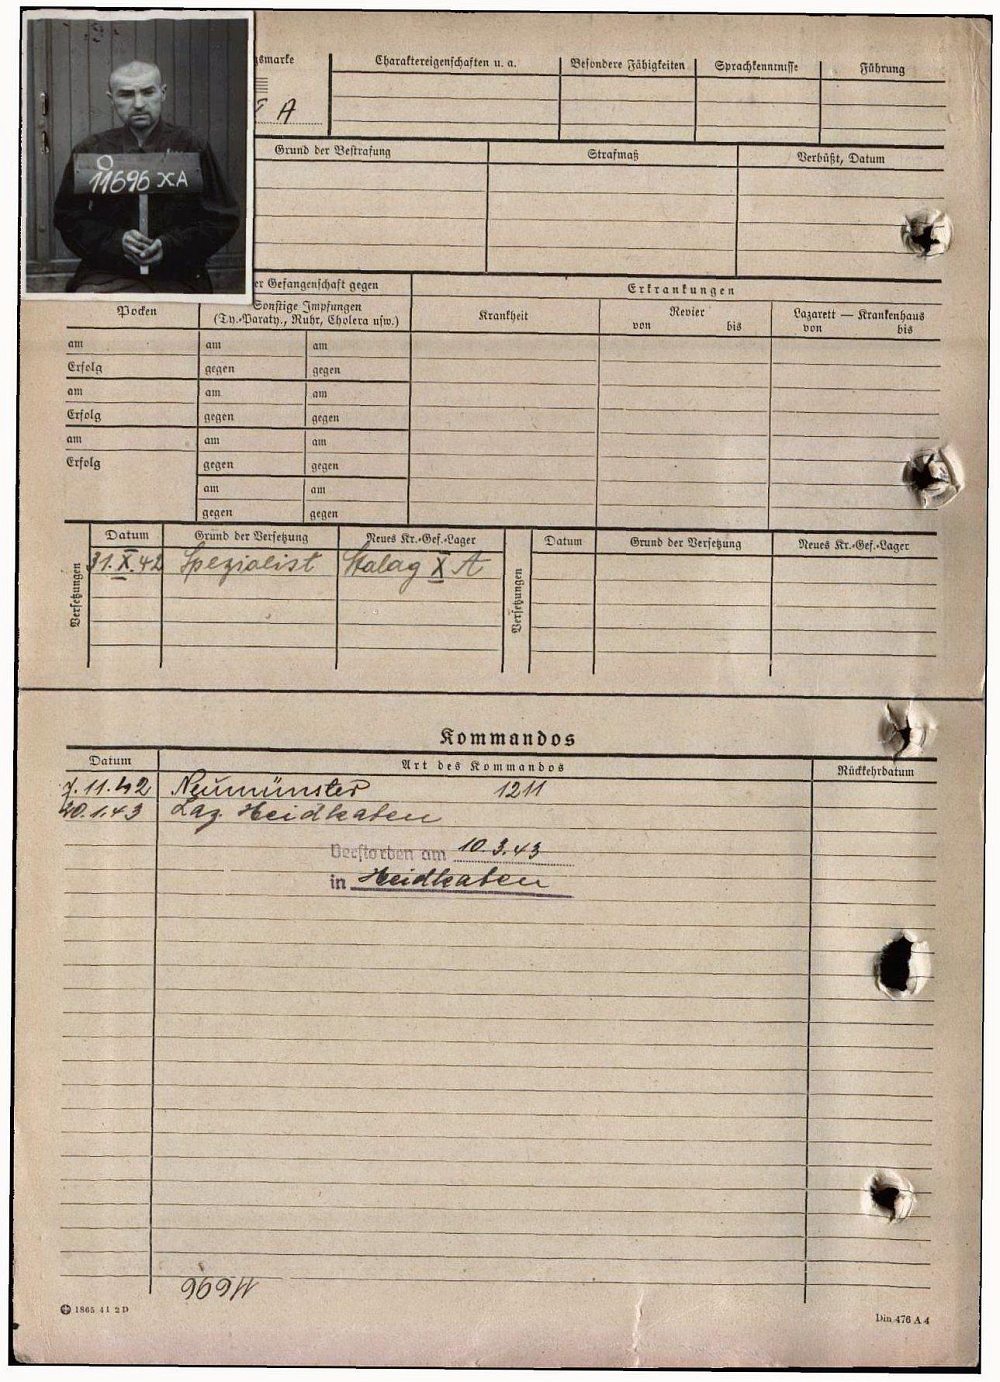 O
11696 XA
gsmarke
A
Charaktereigenschaften u. a.
Besondere Fähigkeiten
Sprachkenntnisse
Führung
Grund der Bestrafung
Strafmaß
Verbüßt, Datum
er Gefangenschaft gegen
Erkrankungen
Pocken
Sonstige Impfungen
(Ty.-Paraty., Ruhr, Cholera usw.)
Krankheit
Revier
von bis
Lazarett — Krankenhaus
von bis
am am am
Erfolg gegen gegen
am am am
Erfolg gegen gegen
am am am
Erfolg gegen gegen
am am
gegen gegen
Versetzungen
Datum Grund der Versetzung Neues Kr.-Gef.-Lager
31.X.42 Spezialist Stalag X A
Versetzungen
Datum Grund der Versetzung Neues Kr.-Gef.-Lager
Kommandos
Datum Art des Kommandos Rückkehrdatum
7.11.42 Neumünster 1211
20.1.43 Laz. Heidkaten
Verstorben am 10.3.43
in Heidkaten
11696
1865 41 2 D
Din 476 A 4